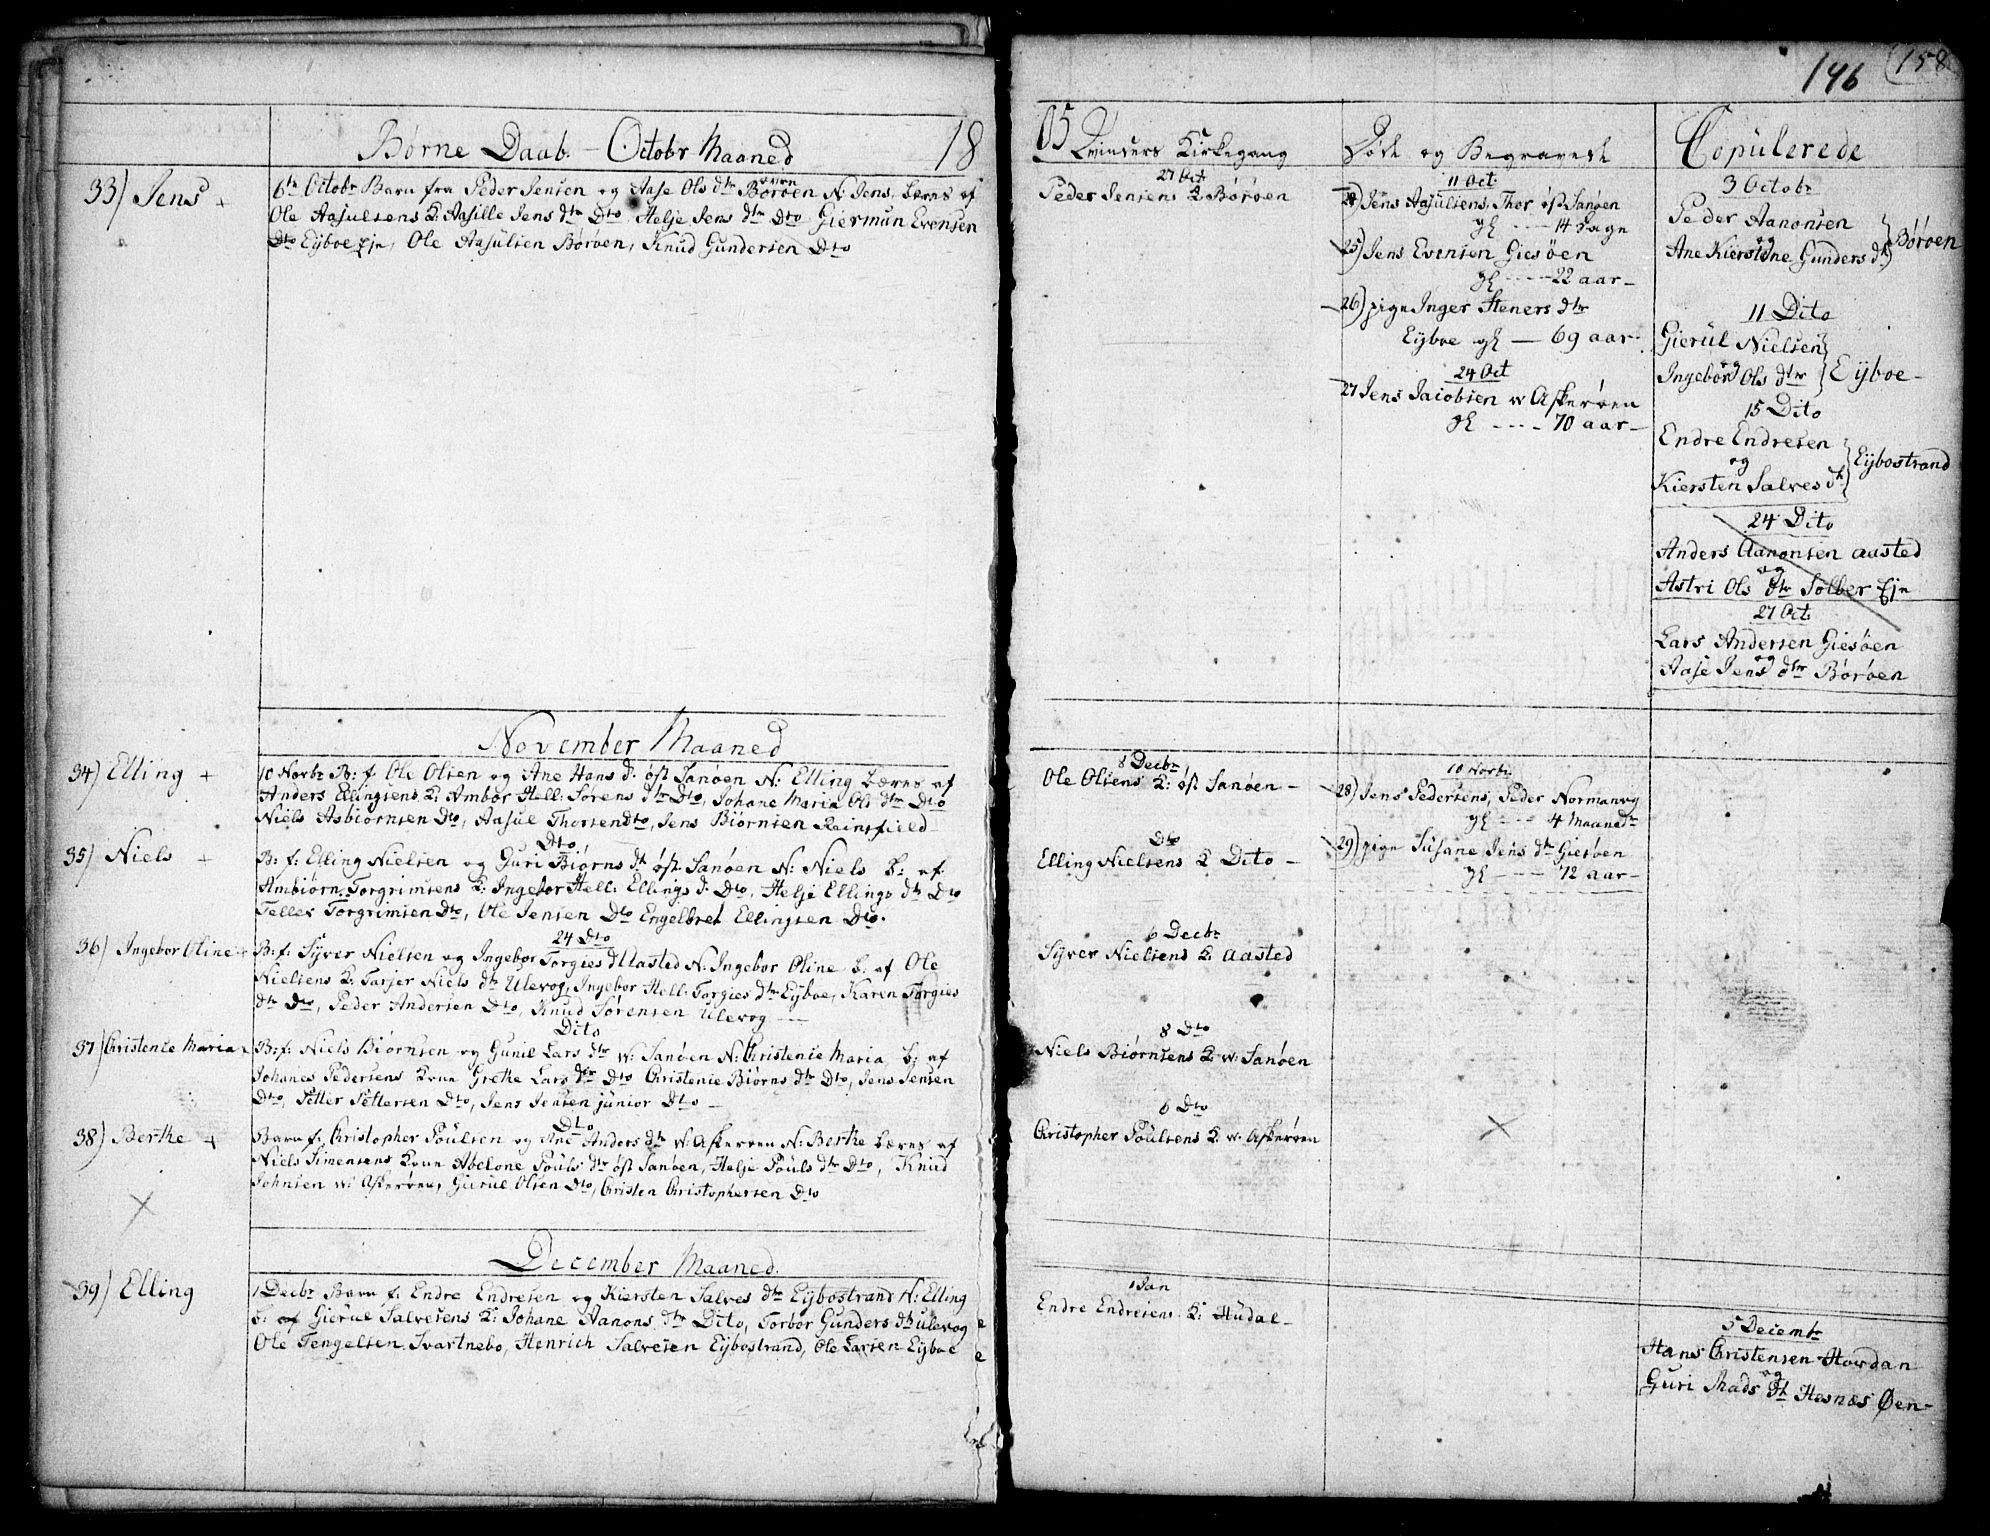 Børne Daab. – Octobr Maaned 18
33) Jens +
6te Octobr Barn fra Peder Jensen og Aase Ols dtr Børøen N: Jens, bæres af
Ole Aasulsens K: Aasille Jens dtr Dto, Helje Jens dtr Dto Giermun Evensen
Dto Eyboe Eje, Ole Aasulsen Børøen, Knud Gundersen Dto
November Maaned
34) Elling +
10 Novbr B: f. Ole Olsen og Ane Hans d. øst Sanøen N: Elling bæres af
Anders Ellingsens K: Ambor Hell: Sørens dtr Dto, Johane Maria Ols dtr Dto
Niels Asbiørnsen Dto, Aasul Thorsen Dto, Jens Biørnsen Reinsfield
35) Niels +
Dto
B: f: Elling Nielsen og Guri Biørns dtr øst Sanøen N: Niels b: af:
Ambiørn Torgrimsens K: Ingebor Hell: Ellings d: Dto, Helje Ellings dtr Dto
Tellef Torgrimsen Dto, Ole Jensen Dto Engelbret Ellingsen Dto.
24 Dto
36) Ingebor Oline +
B: f: Syver Nielsen og Ingebor Torgies d Aasted N: Ingebor Oline b: af Ole
Nielsens K: Tarjer Niels dtr Ulevog, Ingebor Hell: Torgies dtr Eyboe, Karen Torgies
dtr Dto, Peder Andersen Dto, Knud Sørensen Ulevog
Dito
37) Christenie Maria
B: f: Niels Biørnsen og Gunil Lars dtr w: Sanøen N: Christenie Maria b: af
Johanes Pedersens Kone Grethe Lars dtr Dto Christenie Biørns dtr Dto, Jens Jensen
Dto, Petter Pettersen Dto, Jens Jensen junior Dto
Dto
38) Berthe +
Barn f: Christopher Poulsen og Ane Anders dtr w: Askerøen N: Berthe bæres af
Niels Simensens Kone Abelone Pouls dtr øst Sanøen, Helje Pouls dtr Dto, Knud
Johnsen w: Askerøen, Gierul Olsen Dto, Christen Christophersen Dto
December Maaned.
39) Elling
1 Decbr Barn f: Endre Endresen og Kiersten Salves dtr Eybostrand N: Elling
b: af Gierul Salvesens K: Johane Aanons dtr Dito, Torbor Gunders dtr Ulevog
Ole Tengelsen Svartnebo, Henrich Salvesen Eybostrand, Ole Larsen Eyboe
146 158
05 Qvinders Kirkegang
27 Oct
Peder Jensens K Børøen
8 Decbr
Ole Olsens K: øst Sanøen –
Dto
Elling Nielsens K Dito –
6 Decbr
Syver Nielsens K: Aasted
8 Dto
Niels Biørnsens K: w: Sanøen
6 Dto
Christopher Poulsens K: w: Askerøen
1 Jan
Endre Endresens K: Hudal –
Døde og Begravede
11 Oct
24) Jens Aasulsens, Thor øst Sanøen
gl ---- 14 Dage
25) Jens Evensen Giesøen
gl ---- 22 aar –
26) pige Inger Steners dtr
Eyboe gl — 69 aar
24 Oct
27 Jens Jacobsen w Askerøen
gl ---- 70 aar –
10 Novbr
28) Jens Pedersens, Peder Normanvig
gl ---- 4 Maaneder
29) pige Susane Jens dtr Giesøen
gl ---- 72 aar –
Copulerede
3 Octobr
Peder Aanonsen
og
Ane Kierstine Gunders dtr } Børøen
11 Dito
Gierul Nielsen
og
Ingebor Ols dtr } Eyboe –
15 Dito
Endre Endresen
og
Kiersten Salves dtr } Eybostrand
24 Dito
Anders Aanonsen Aasted
og
Astri Ols dtr Solber Eje
27 Oct
Lars Andersen Giesøen
og
Aase Jens dtr Børøen
5 Decembr
Hans Christensen Hovdan
og
Guri Mads dtr Hesnæs Øen –